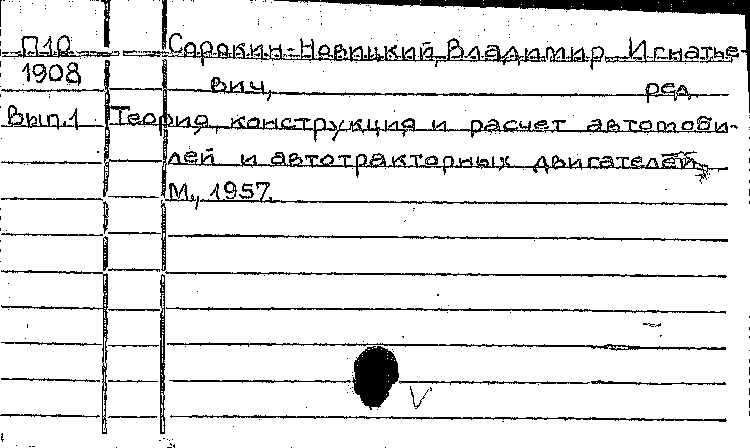 П10 Сорокин-Новицкий, Владимир Игнатье-
1908 вич, ред.
Вып.1 Теория, конструкция и расчет автомоби-
лей и автотракторных двигателей.
М., 1957.